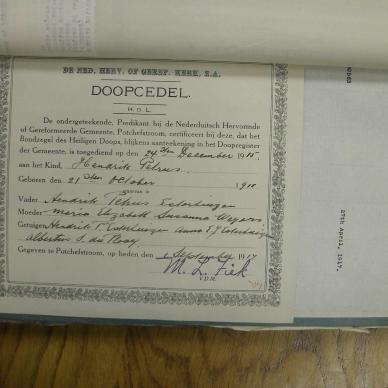 DE NED. HERV. OF GEREF. KERK, Z.A.
DOOPCEDEL.
De ondergeteekende, Predikant bij de Nederduitsch Hervormde
of Gereformeerde Gemeente, Potchefstroom, certificeert bij deze, dat het
Bondzegel des Heiligen Doops, blijkens aanteekening in het Doopregister
der Gemeente, is toegediend op den 24sten December 1910
aan het Kind, Hendrik Petrus
Geboren den 21sten October 1910
Vader Hendrik Petrus
Moeder Maria Elizabeth Susanna
Getuigen Hendrik Anna
Albertus J. du Plooy
Gegeven te Potchefstroom, op heden den 1 September 1917
M. L. Fick
V.D.M.
27th April, 1917.